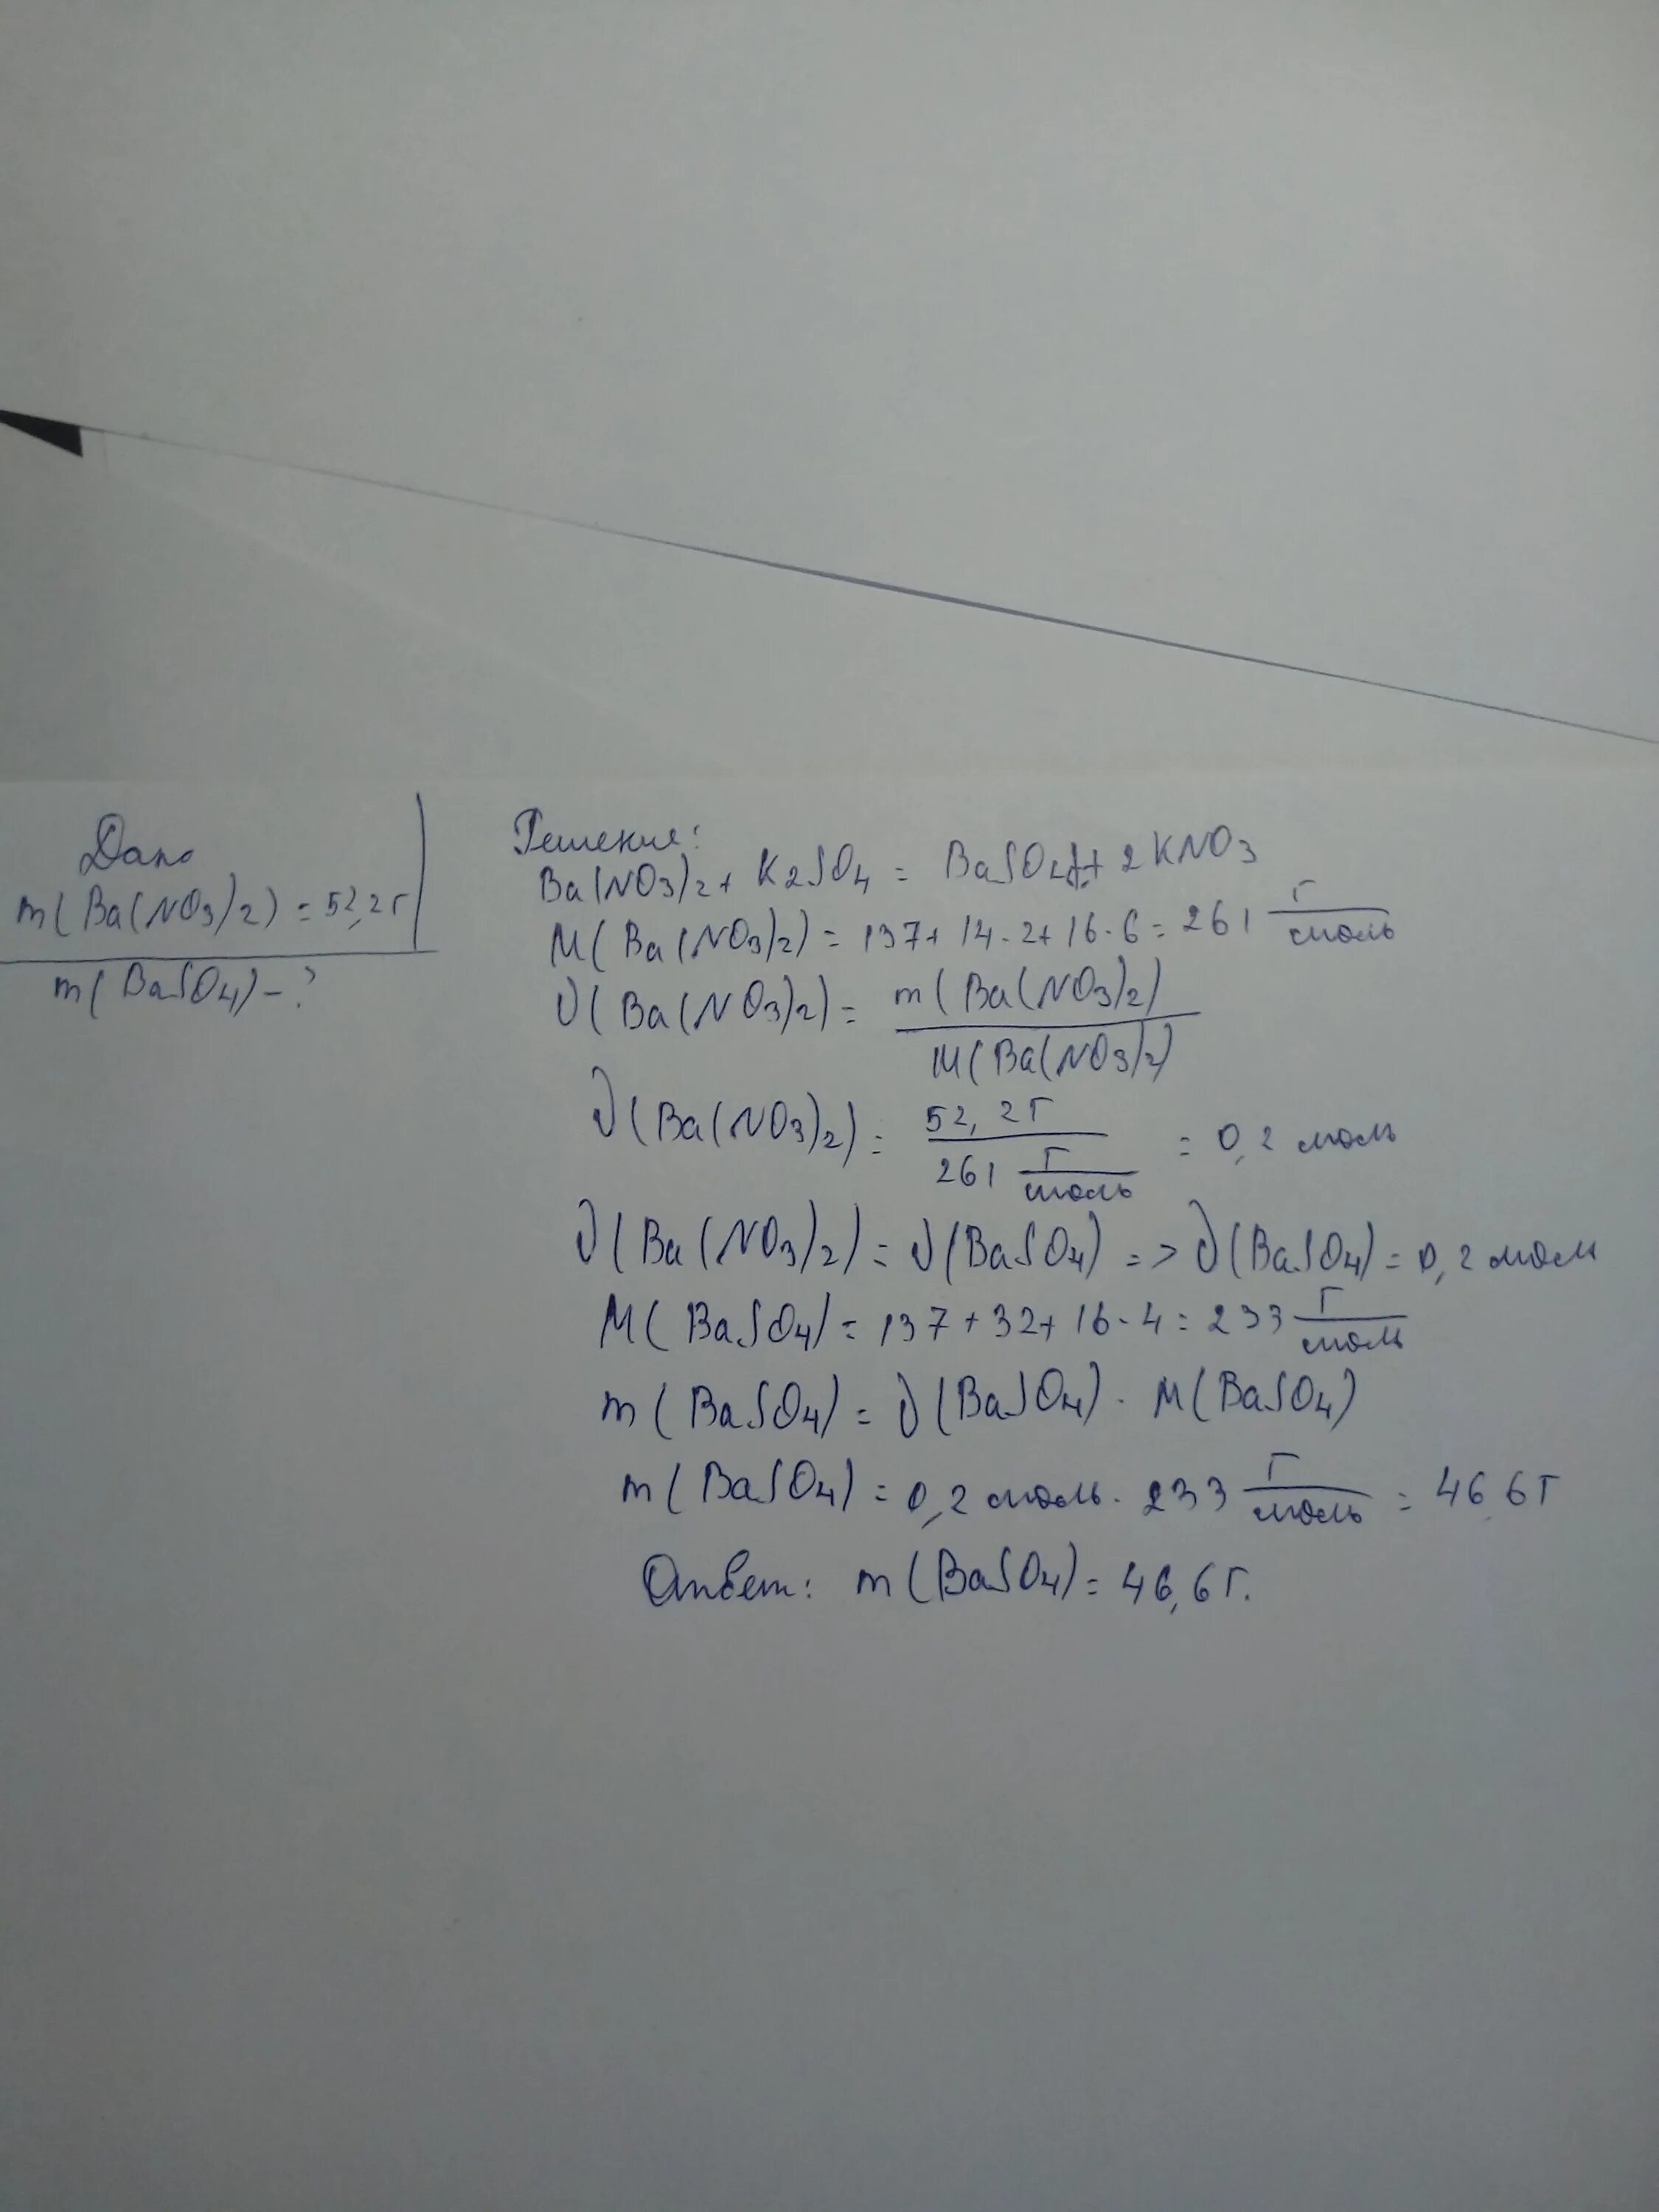 Дано
m(Ba(NO3)2) = 52,2г
m(BaSO4) - ?
Решение:
Ba(NO3)2 + K2SO4 = BaSO4↓ + 2KNO3
M(Ba(NO3)2) = 137 + 14 · 2 + 16 · 6 = 261 г/моль
ν(Ba(NO3)2) = m(Ba(NO3)2) / M(Ba(NO3)2)
ν(Ba(NO3)2) = 52,2г / 261 г/моль = 0,2 моль
ν(Ba(NO3)2) = ν(BaSO4) => ν(BaSO4) = 0,2 моль
M(BaSO4) = 137 + 32 + 16 · 4 = 233 г/моль
m(BaSO4) = ν(BaSO4) · M(BaSO4)
m(BaSO4) = 0,2 моль · 233 г/моль = 46,6г
Ответ: m(BaSO4) = 46,6г.